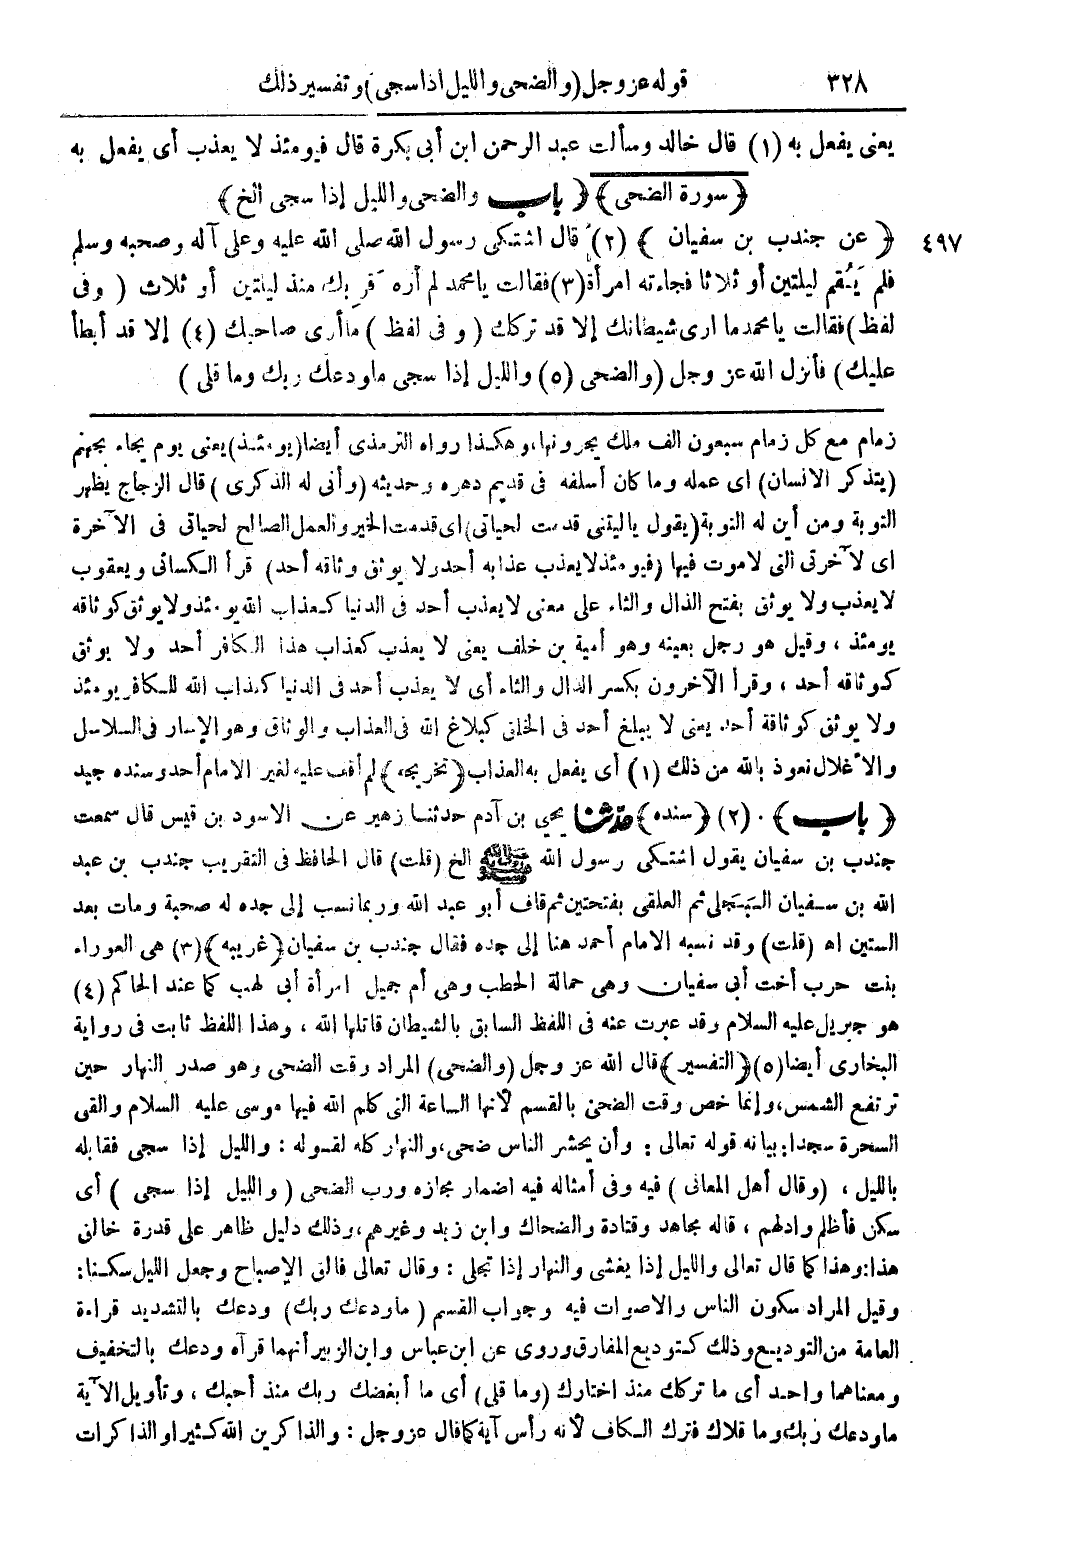 ٣٢٨ قوله عز وجل (والضحى والليل اذا سجى) وتفسير ذلك
يعنى يفعل به (١) قال خالد وسألت عبد الرحمن ابن أبى بكرة قال فيومئذ لا يعذب أى يفعل به
﴿سورة الضحى﴾ ﴿باب والضحى والليل إذا سجى الخ﴾
٤٩٧ ﴿عن جندب بن سفيان﴾ (٢) قال اشتكى رسول الله صلى الله عليه وعلى آله وصحبه وسلم
فلم يَقُم ليلتين أو ثلاثا فجاءته امرأة (٣) فقالت يا محمد لم أره قربك منذ ليلتين أو ثلاث (وفى
لفظ) فقالت يا محمد ما ارى شيطانك إلا قد تركك (وفى لفظ) ما أرى صاحبك (٤) إلا قد أبطأ
عليك) فأنزل الله عز وجل (والضحى (٥) والليل إذا سجى ما ودعك ربك وما قلى)
زمام مع كل زمام سبعون الف ملك يجرونها، وهكذا رواه الترمذى أيضا (يومئذ) يعنى يوم يجاء بجهنم
(يتذكر الانسان) اى عمله وما كان أسلفه فى قديم دهره وحديثه (وأنى له الذكرى) قال الزجاج يظهر
التوبة ومن أين له التوبة (يقول ياليتنى قدمت لحياتى) اى قدمت الخير والعمل الصالح لحياتى فى الآخرة
اى لآخرتى التى لا موت فيها (فيومئذ لا يعذب عذابه أحد ولا يوثق وثاقه أحد) قرأ الكسائى ويعقوب
لا يعذب ولا يوثق بفتح الذال والثاء على معنى لا يعذب أحد فى الدنيا كعذاب الله يومئذ ولا يوثق كوثاقه
يومئذ ، وقيل هو رجل بعينه وهو أمية بن خلف يعنى لا يعذب كعذاب هذا الكافر أحد ولا يوثق
كوثاقه أحد ، وقرأ الآخرون بكسر الذال والثاء أى لا يعذب أحد فى الدنيا كعذاب الله للكافر يومئذ
ولا يوثق كوثاقة أحد يعنى لا يبلغ أحد فى الخلق كبلاغ الله فى العذاب والوثاق وهو الإسار فى السلاسل
والأغلال نعوذ بالله من ذلك (١) أى يفعل به العذاب ﴿تخريجه﴾ لم أقف عليه لغير الامام أحد وسنده جيد
﴿باب﴾ . (٢) ﴿سنده﴾ حدّثنا يحيى بن آدم حدثنا زهير عن الاسود بن قيس قال سمعت
جندب بن سفيان يقول اشتكى رسول الله ﷺ الخ (قلت) قال الحافظ فى التقريب جندب بن عبد
الله بن سفيان البَجَلى ثم العلقى بفتحتين ثم قاف أبو عبد الله وربما نسب إلى جده له صحبة ومات بعد
الستين اه (قلت) وقد نسبه الامام أحمد هنا إلى جده فقال جندب بن سفيان ﴿غريبه﴾ (٣) هى العوراء
بنت حرب أخت أبى سفيان وهى حمالة الحطب وهى أم جميل امرأة أبى لهب كما عند الحاكم (٤)
هو جبريل عليه السلام وقد عبرت عنه فى اللفظ السابق بالشيطان قاتلها الله ، وهذا اللفظ ثابت فى رواية
البخارى أيضا (٥) ﴿التفسير﴾ قال الله عز وجل (والضحى) المراد وقت الضحى وهو صدر النهار حين
ترتفع الشمس، وإنما خص وقت الضحى بالقسم لأنها الساعة التى كلم الله فيها موسى عليه السلام والقى
السحرة سجدا: بيانه قوله تعالى : وأن يحشر الناس ضحى، والنهار كله لقوله : والليل إذا سجى فقابله
بالليل ، (وقال أهل المعانى) فيه وفى أمثاله فيه اضمار مجازه ورب الضحى (والليل إذا سجى) أى
سكن فأظلم وادلهم ، قاله مجاهد وقتادة والضحاك وابن زيد وغيرهم، وذلك دليل ظاهر على قدرة خالق
هذا: وهذا كما قال تعالى والليل إذا يغشى والنهار إذا تجلى : وقال تعالى فالق الإصباح وجعل الليل سكنا:
وقيل المراد سكون الناس والاصوات فيه وجواب القسم (ما ودعك ربك) ودعك بالتشديد قراءة
العامة من التوديع وذلك كتوديع المفارق وروى عن ابن عباس وابن الزبير أنهما قرآه ودعك بالتخفيف
ومعناهما واحد أى ما تركك منذ اختارك (وما قلى) أى ما أبغضك ربك منذ أحبك ، وتأويل الآية
ما ودعك ربك وما قلاك فترك الكاف لأنه رأس آية كما قال عز وجل : والذاكرين الله كثيرا والذاكرات